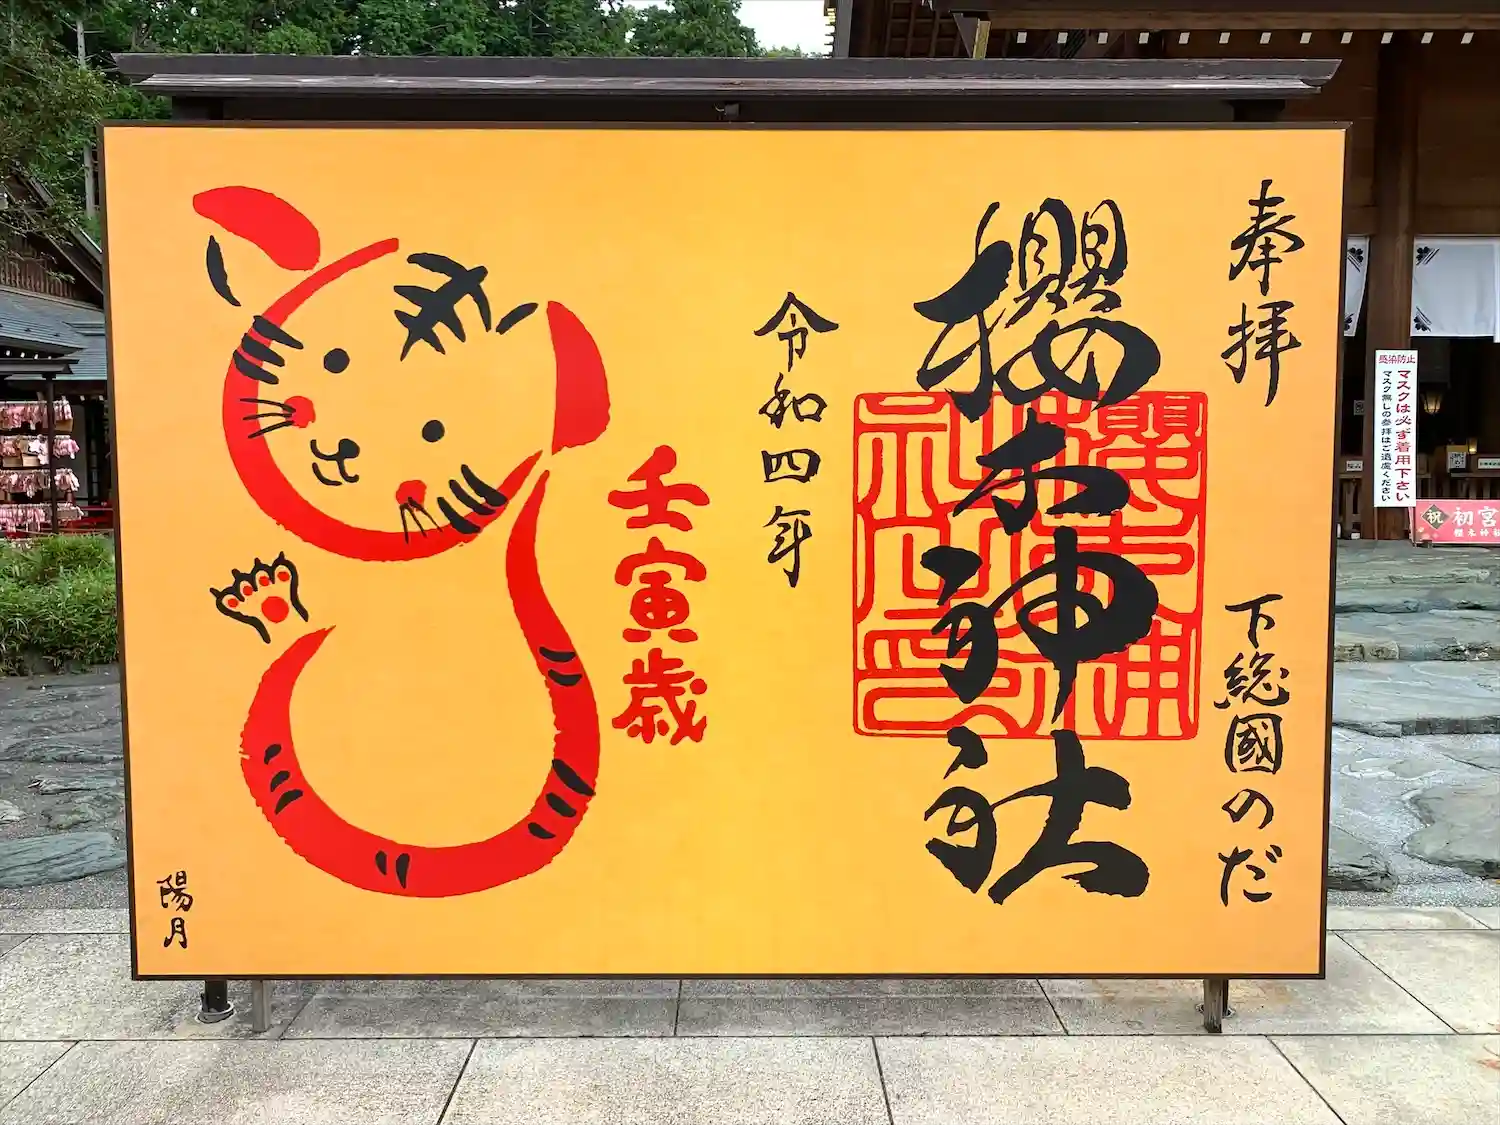 奉拝
下総國のだ
櫻木神社
櫻木神社印
令和四年
壬寅歳
陽月
感染防止
マスクは必ず着用下さい
マスク無しの参拝はご遠慮ください
祝
初宮
櫻木神社